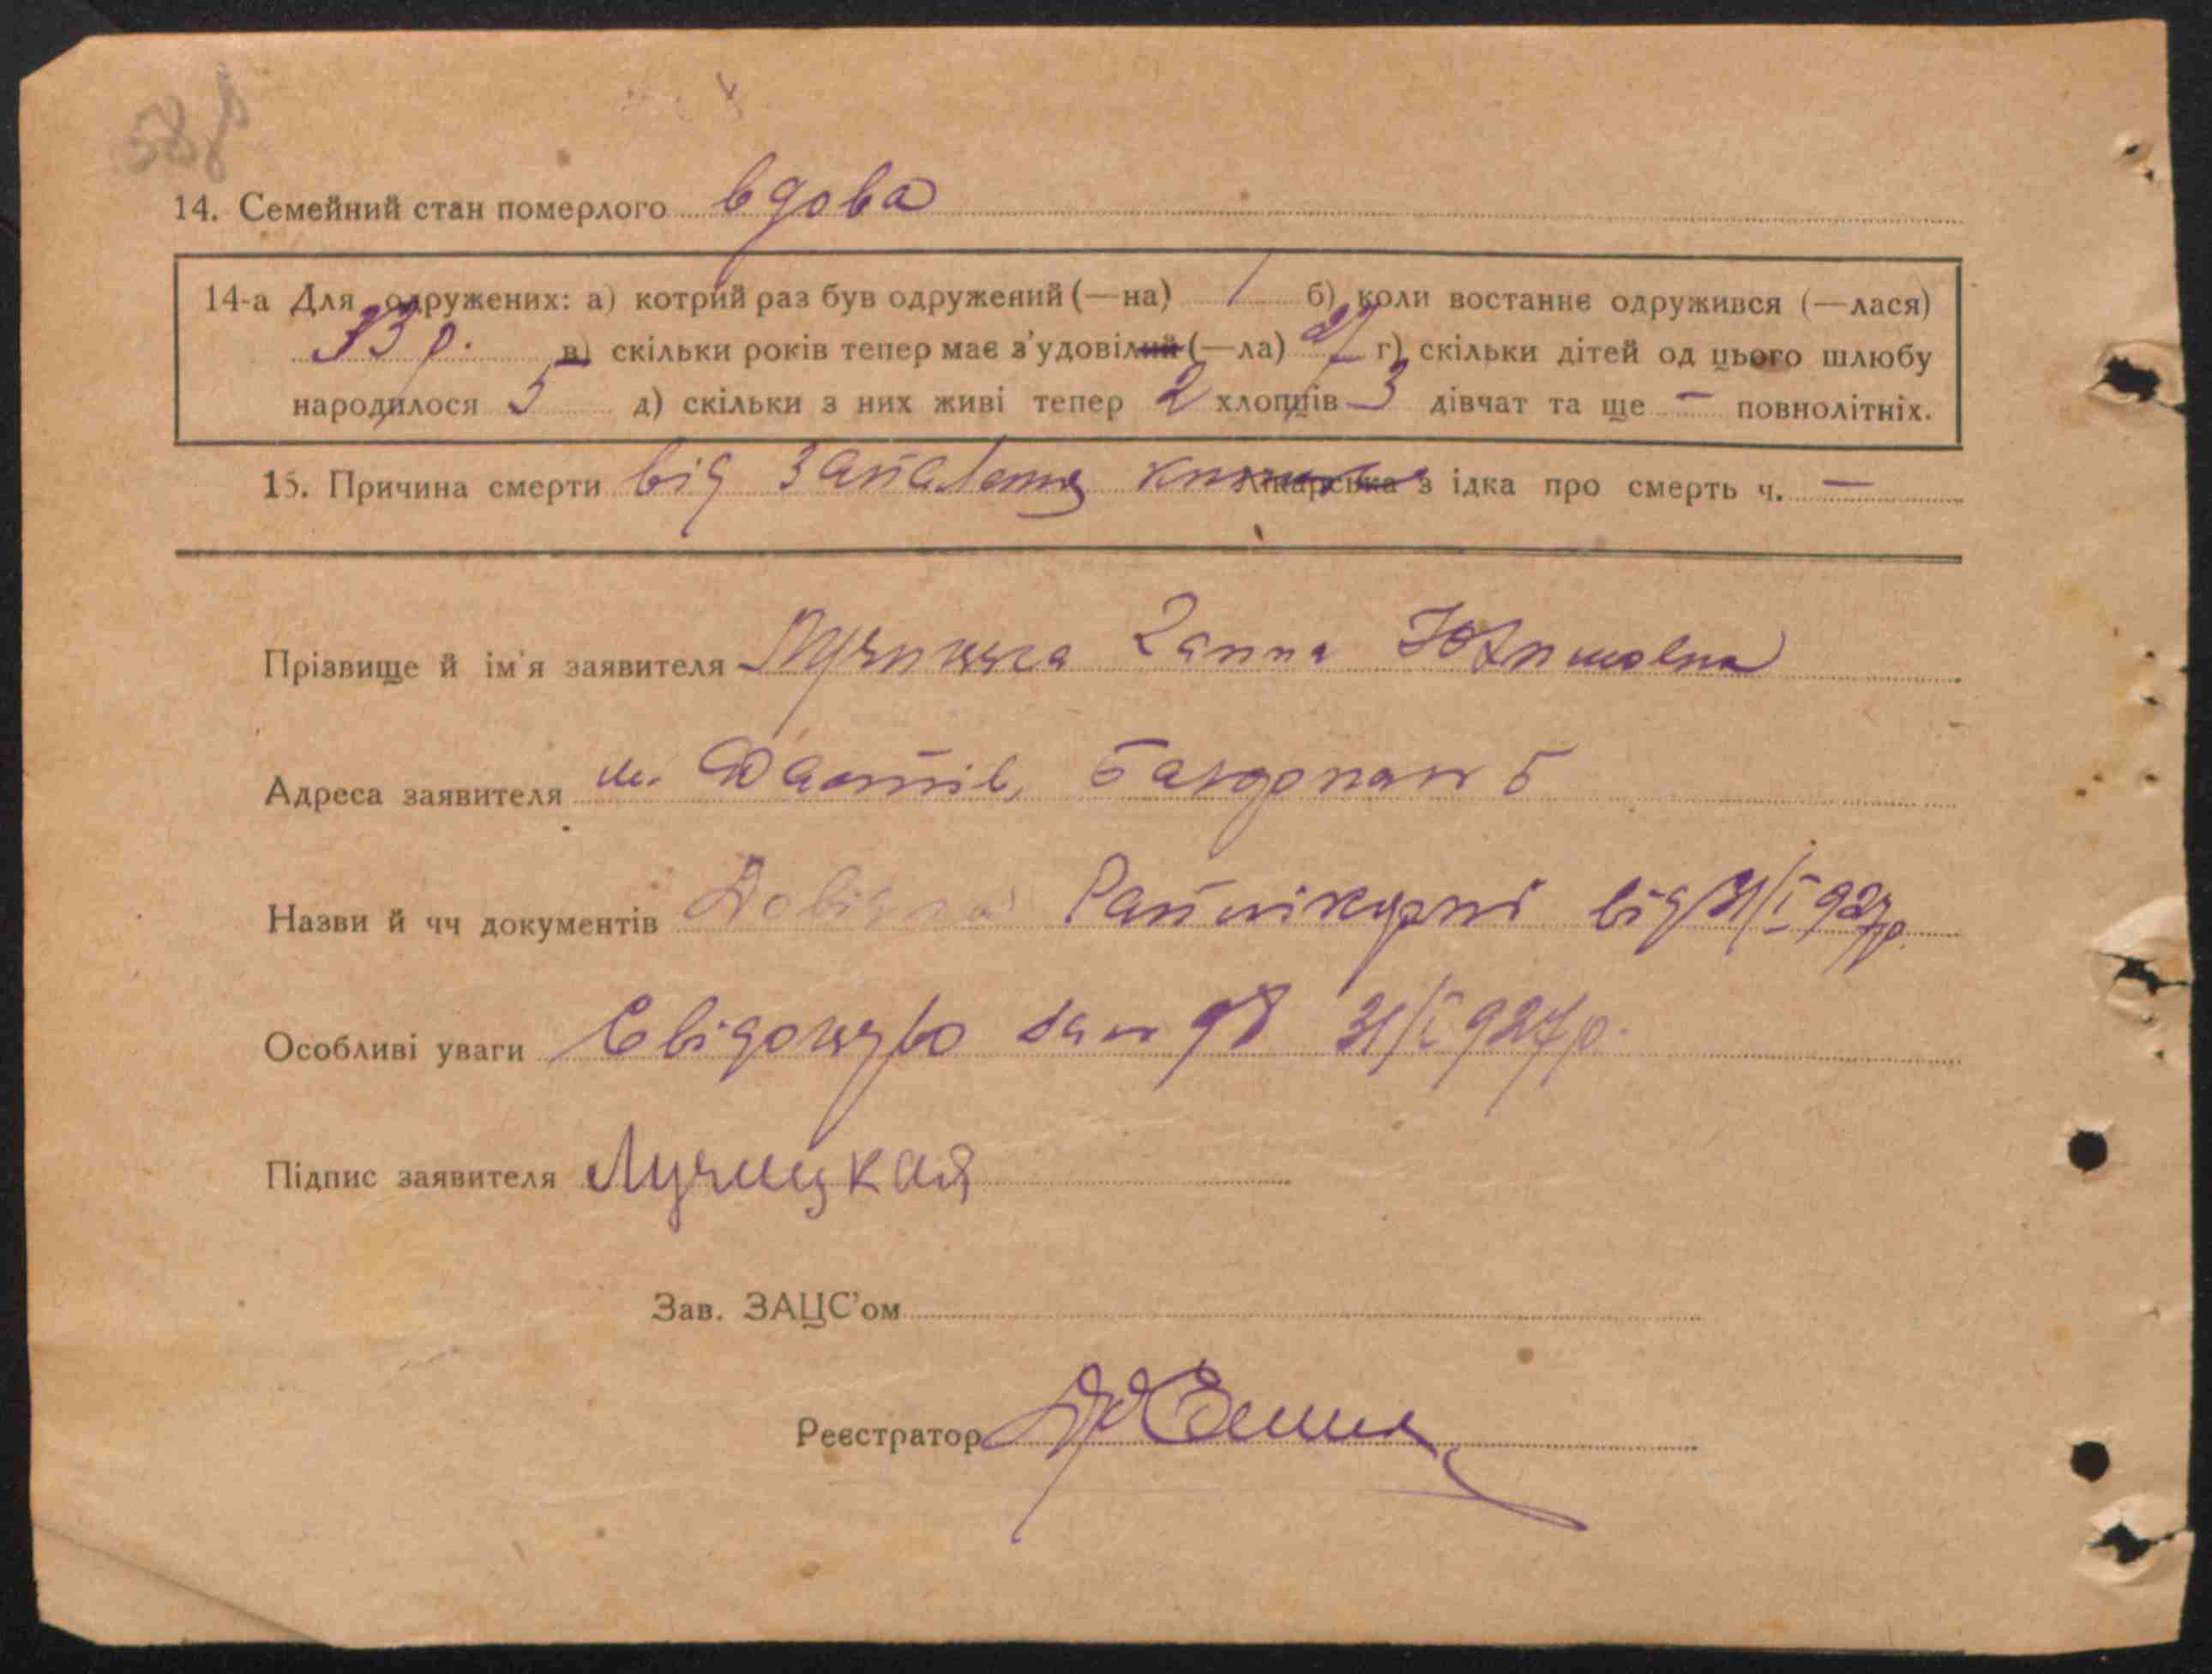 58
14. Семейний стан померлого вдова
14-а Для одружених: а) котрий раз був одружений (—на) 1 б) коли востаннє одружився (—лася)
33 р. в) скільки років тепер має з'удовілий (—ла) 27 г) скільки дітей од цього шлюбу
народилося 5 д) скільки з них живі тепер 2 хлопців 3 дівчат та ще — повнолітніх.
15. Причина смерти від запалення Лікарська з ідка про смерть ч. —
Прізвище й ім'я заявителя Лучицька Ганна
Адреса заявителя м. Фастів, 5
Назви й чч документів Довідка Райлікарні від 31/I 927 р.
Особливі уваги Свідоцтво 98 31/I 927 р.
Підпис заявителя Лучицкая
Зав. ЗАЦС'ом
Реєстратор